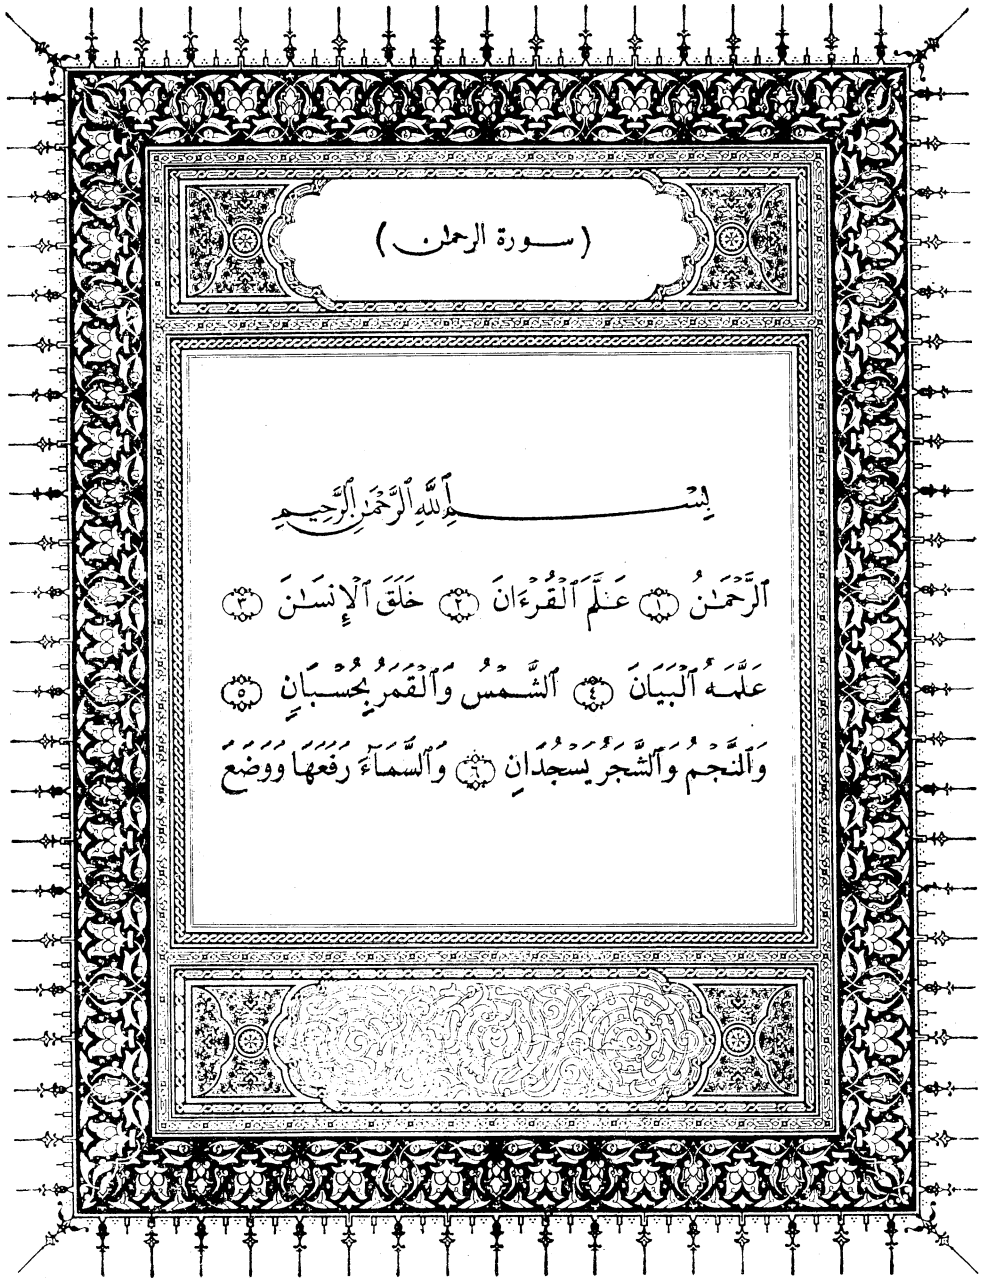 ( سورة الرحمان )
بِسْمِ ٱللَّهِ ٱلرَّحْمَٰنِ ٱلرَّحِيمِ
ٱلرَّحْمَٰنُ ١ عَلَّمَ ٱلْقُرْءَانَ ٢ خَلَقَ ٱلْإِنسَٰنَ ٣
عَلَّمَهُ ٱلْبَيَانَ ٤ ٱلشَّمْسُ وَٱلْقَمَرُ بِحُسْبَانٍ ٥
وَٱلنَّجْمُ وَٱلشَّجَرُ يَسْجُدَانِ ٦ وَٱلسَّمَآءَ رَفَعَهَا وَوَضَعَ